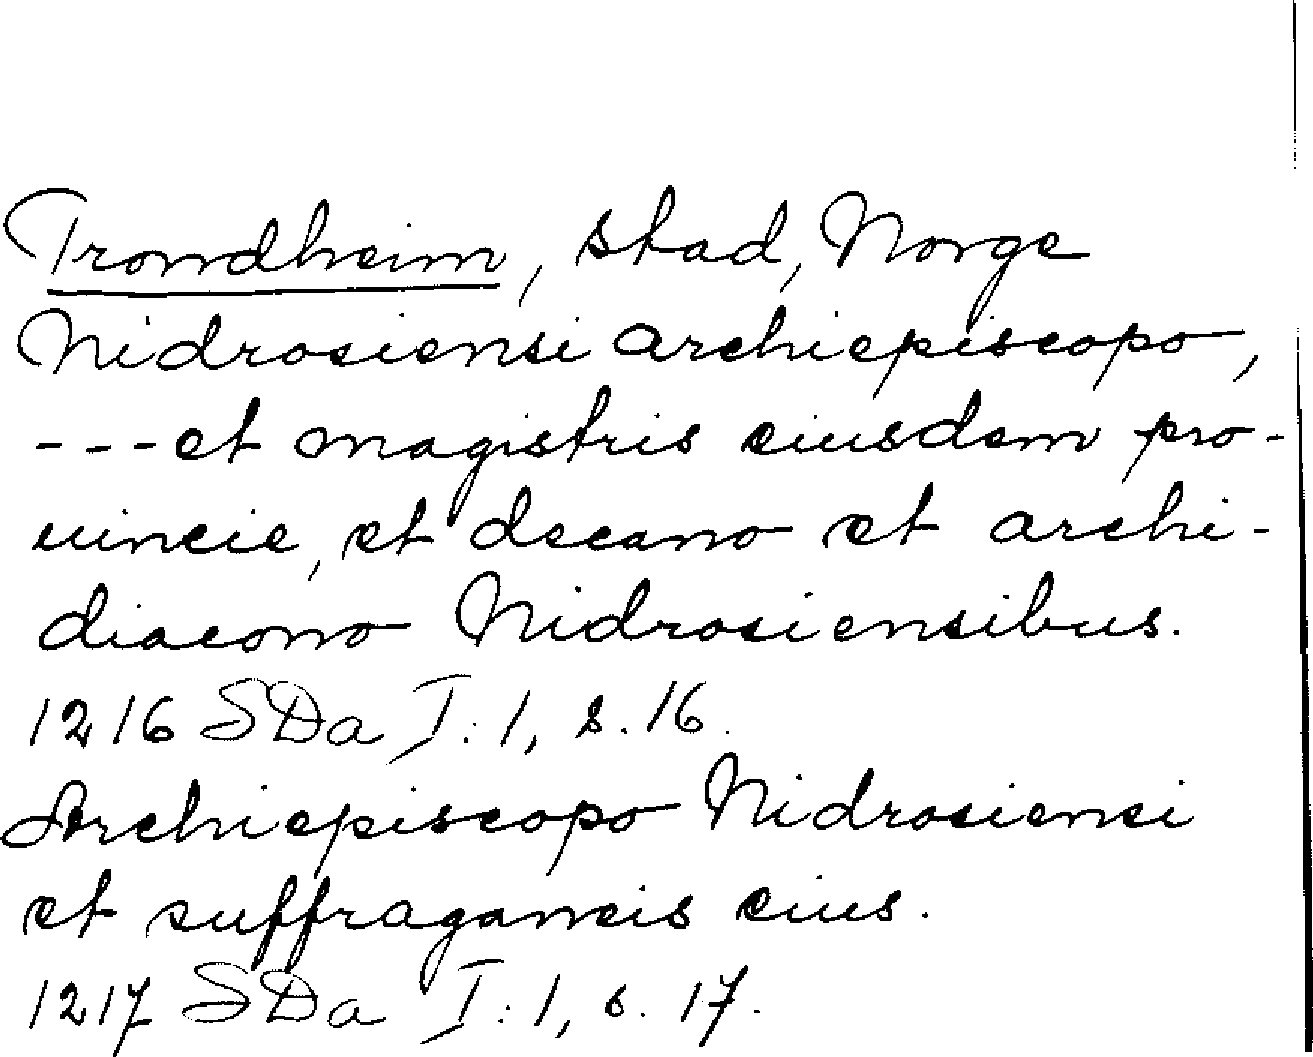 Trondheim, stad, Norge
Nidrosiensi archiepiscopo,
---et magistris eiusdem pro-
uincie, et decano et archi-
diacono Nidrosiensibus.
1216 SDa I:1, s. 16.
Archiepiscopo Nidrosiensi
et suffraganeis eius.
1217 SDa I:1, s. 17.